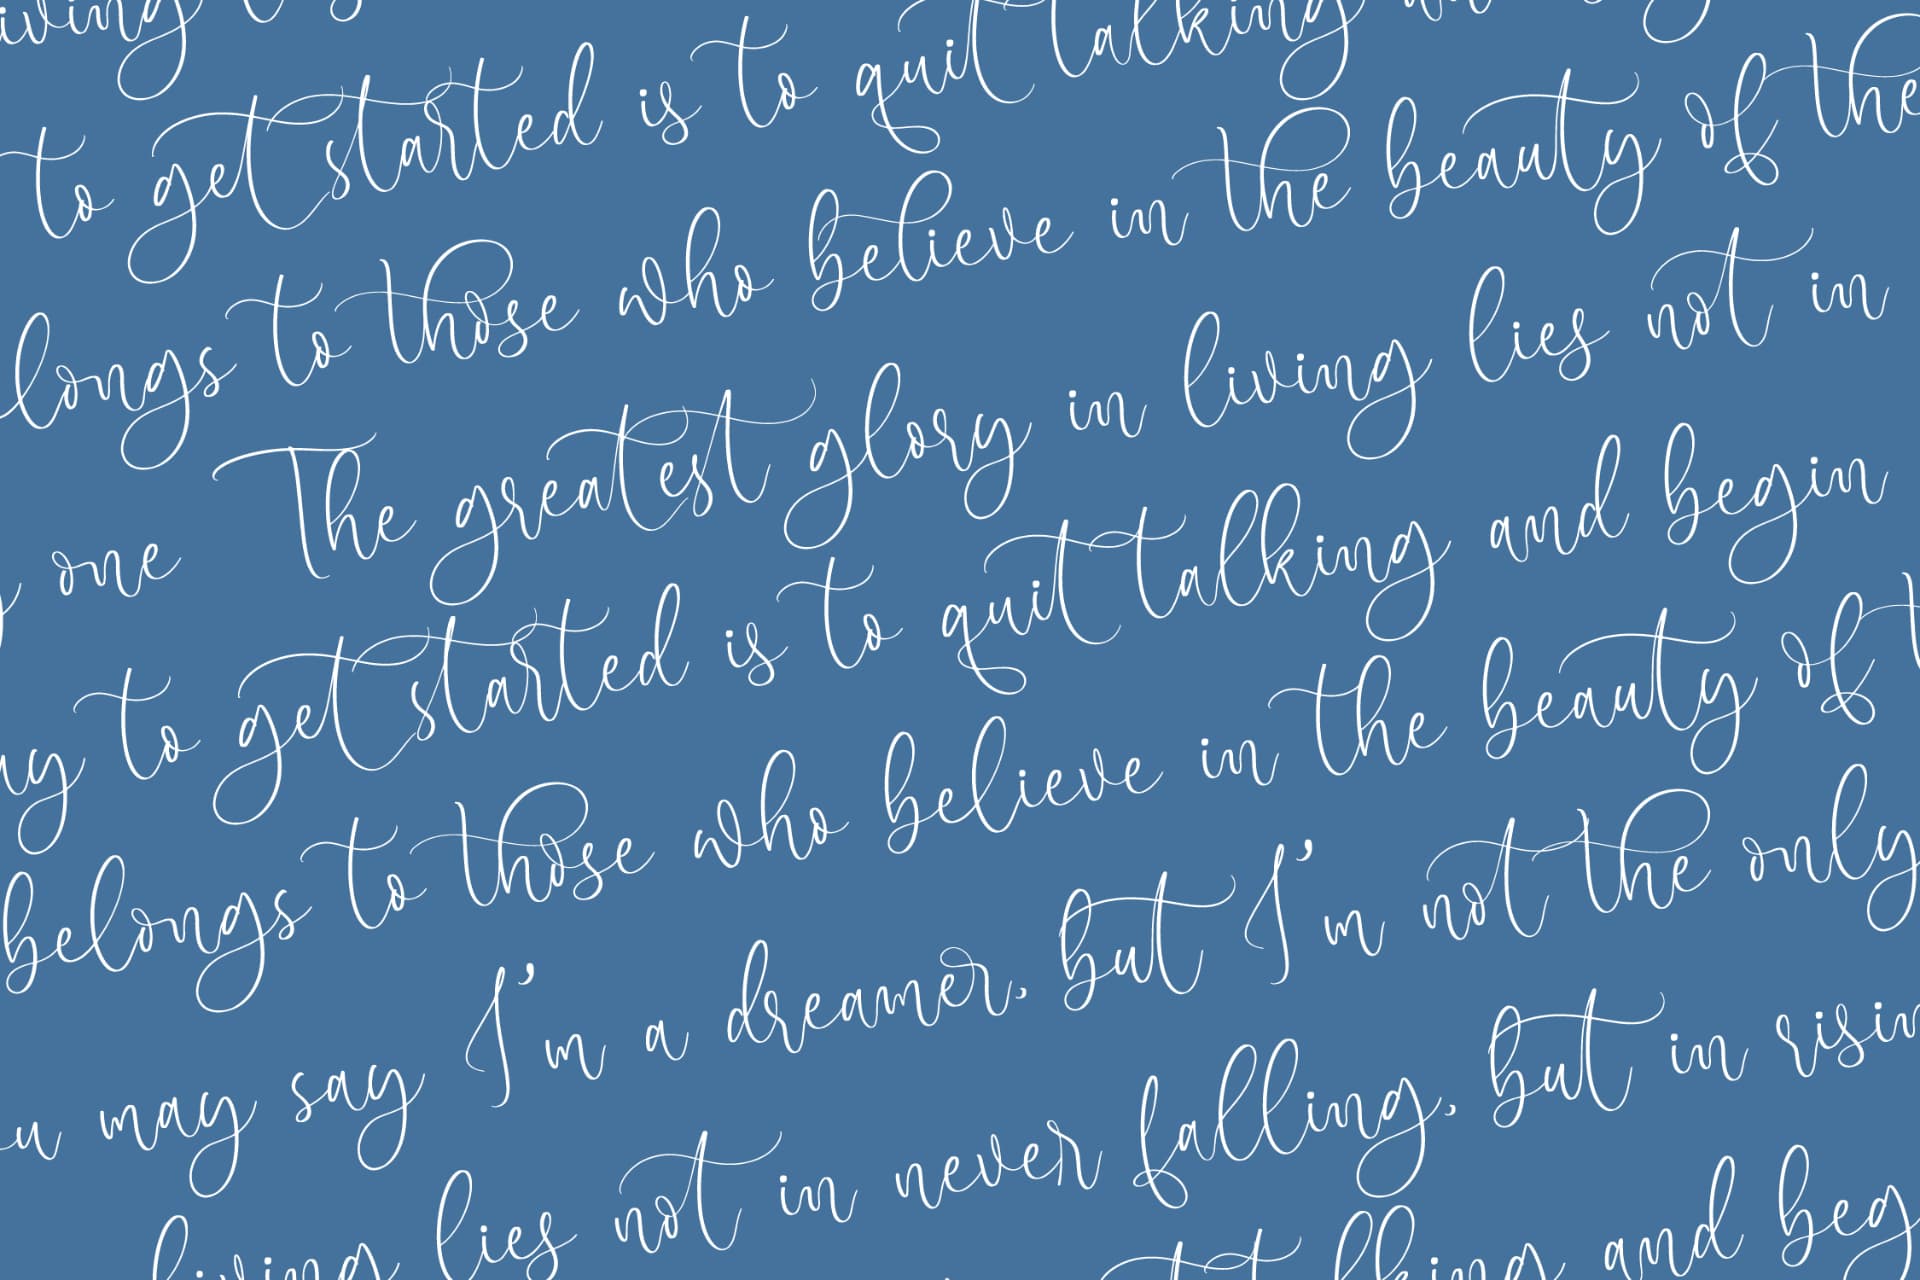 living
to get started is to quit talking
longs to those who believe in the beauty of the
one The greatest glory in living lies not in
to get started is to quit talking and begin
belongs to those who believe in the beauty of
may say I'm a dreamer, but I'm not the only
living lies not in never falling, but in risin
talking and beg